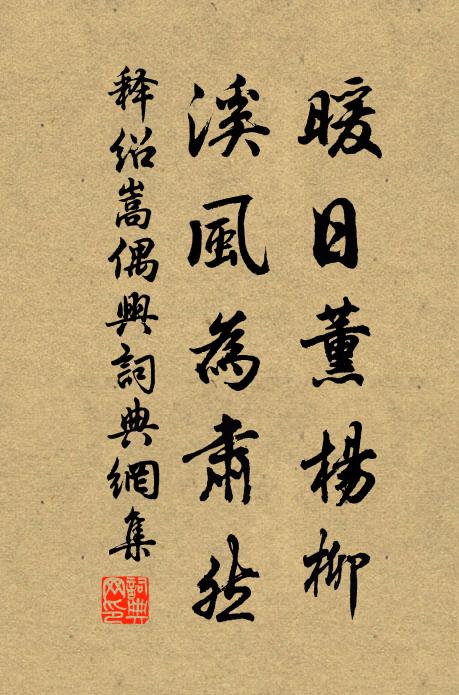 暖日薰楊柳
溪風為肅然
释绍嵩偶興詞典網集
詞典網印